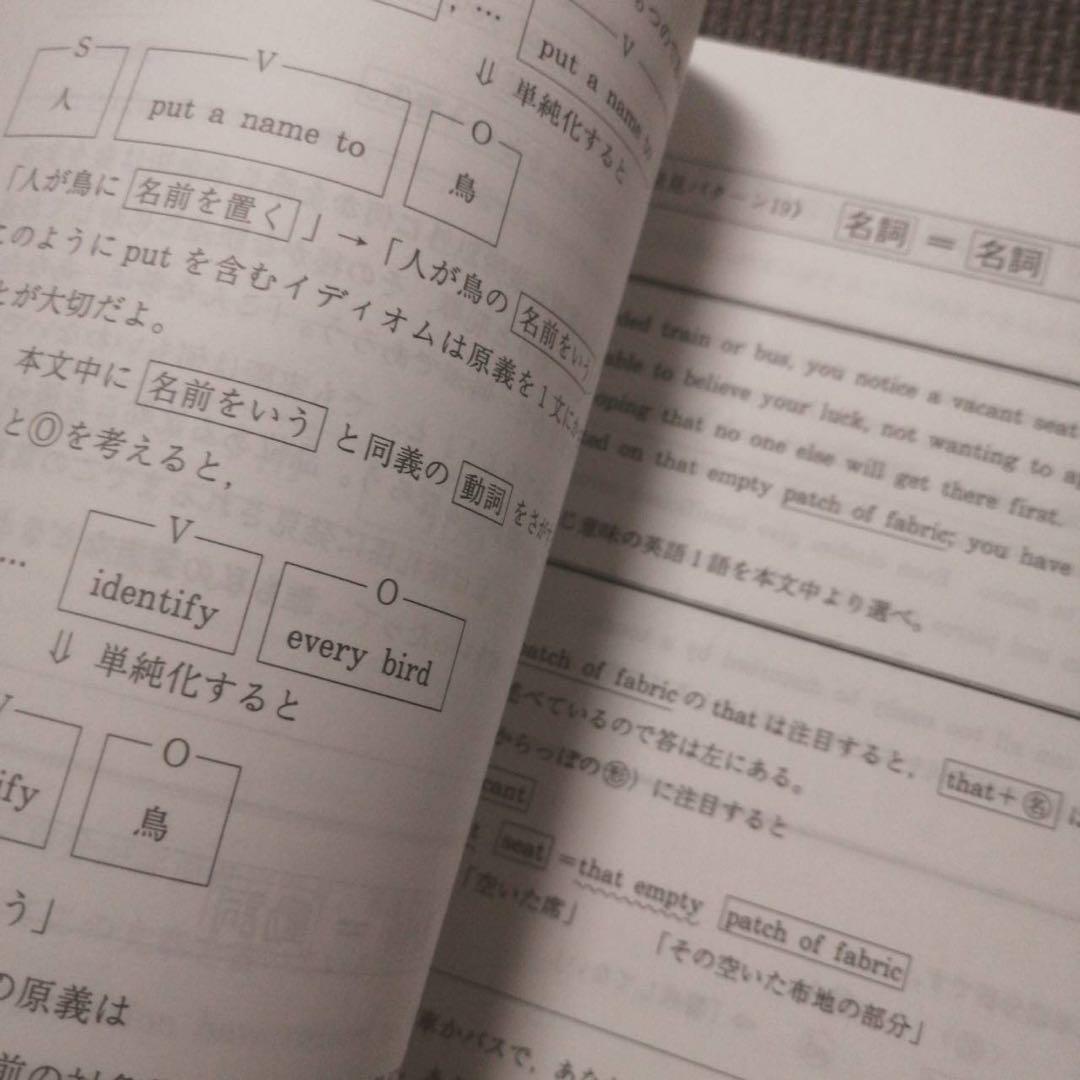 , …
V
put a name to
⇓ 単純化すると
S
人
V
put a name to
O
鳥
「人が鳥に 名前を置く 」→「人が鳥の 名前をいう
このように put を含むイディオムは原義を1文に
とが大切だよ。
本文中に 名前をいう と同義の 動詞 をさがす
とⓄを考えると，
…
V
identify
O
every bird
⇓ 単純化すると
V
ify
O
鳥
う」
の原義は
パターン19》 名詞 ＝ 名詞
ded train or bus, you notice a vacant seat
able to believe your luck, not wanting to ap
oping that no one else will get there first.
ted on that empty patch of fabric; you have
じ意味の英語1語を本文中より選べ。
patch of fabric の that は注目すると， that＋㊔ は
述べているので答は左にある。
からっぽの㊒）に注目すると
cant
seat ＝that empty patch of fabric
「空いた席」
「その空いた布地の部分」
車かバスで，あな